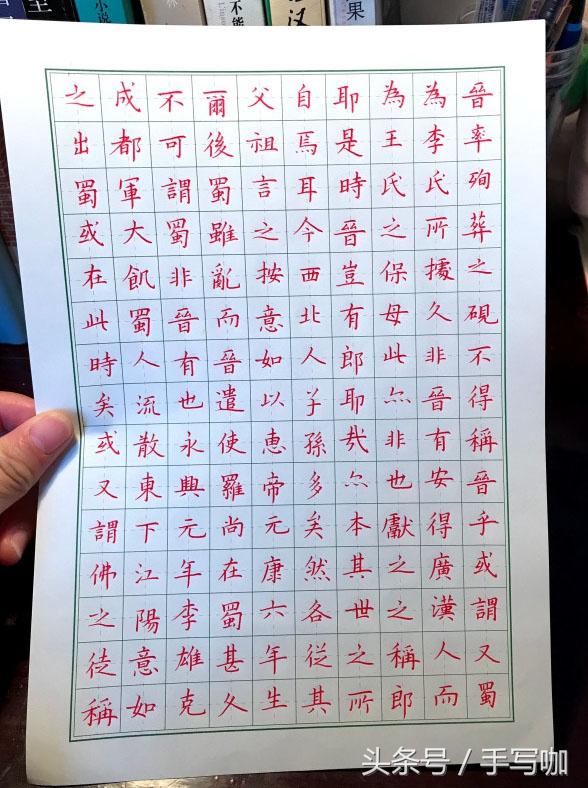 晉率殉葬之硯不得稱晉乎或謂又蜀
為李氏所據久非晉有安得廣漢人而
為王氏之保母此亦非也獻之之稱郎
耶是時晉豈有郎耶哉亦本其世之所
自焉耳今西北人子孫多矣然各從其
父祖言之按意如以恵帝元康六年生
爾後蜀雖亂而晉遣使羅尚在蜀甚久
不可謂蜀非晉有也永興元年李雄克
成都軍大飢蜀人流散東下江陽意如
之出蜀或在此時矣或又謂佛之徒稱
小说
不能
汉
果
头条号 / 手写咖